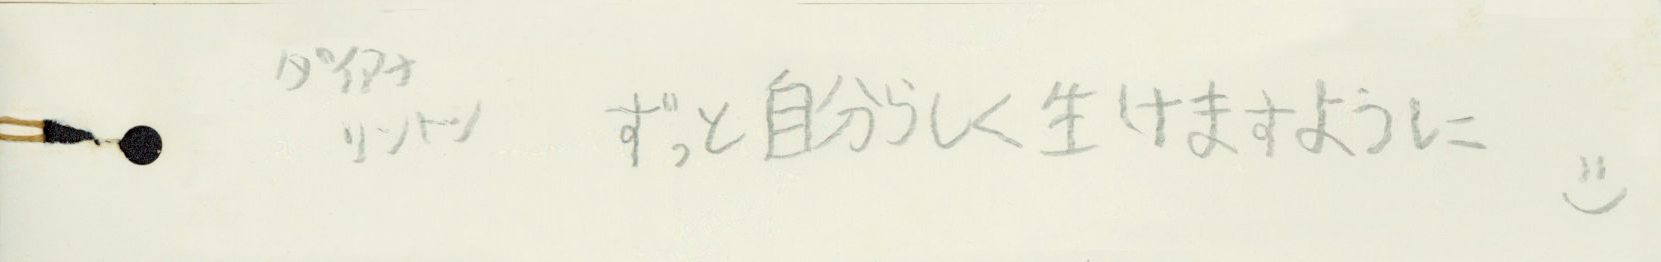 ダイアナ
リントン
ずっと自分らしく生けますように